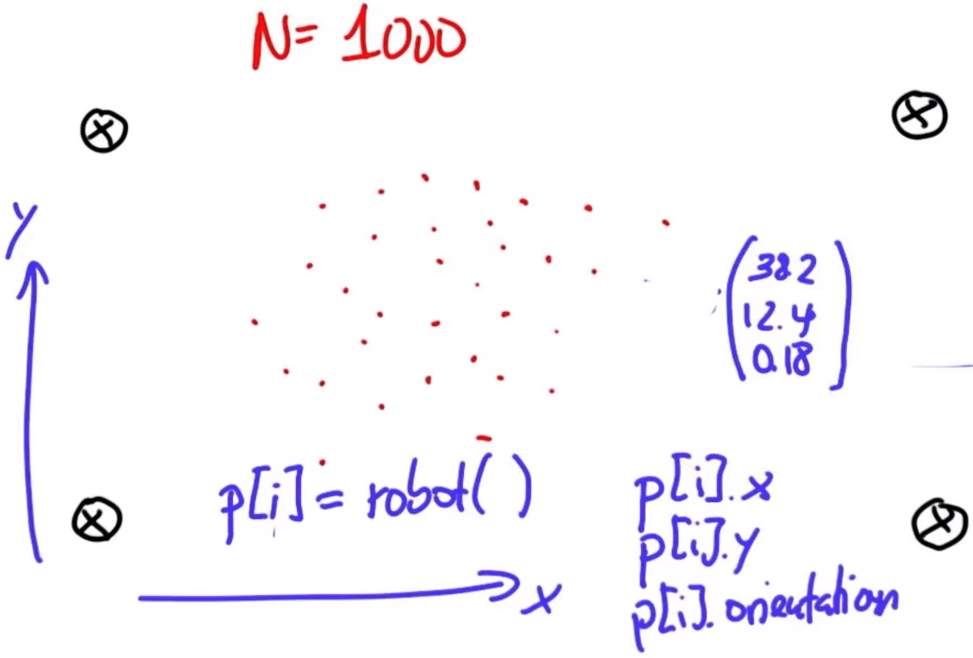 N= 1000
y
38.2
12.4
0.18
p[i] = robot()
p[i].x
p[i].y
p[i].orientation
x